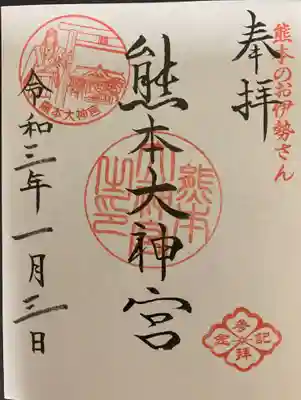 熊本のお伊勢さん
奉拝
熊本大神宮
令和三年一月三日
熊本大神宮
参拝記念